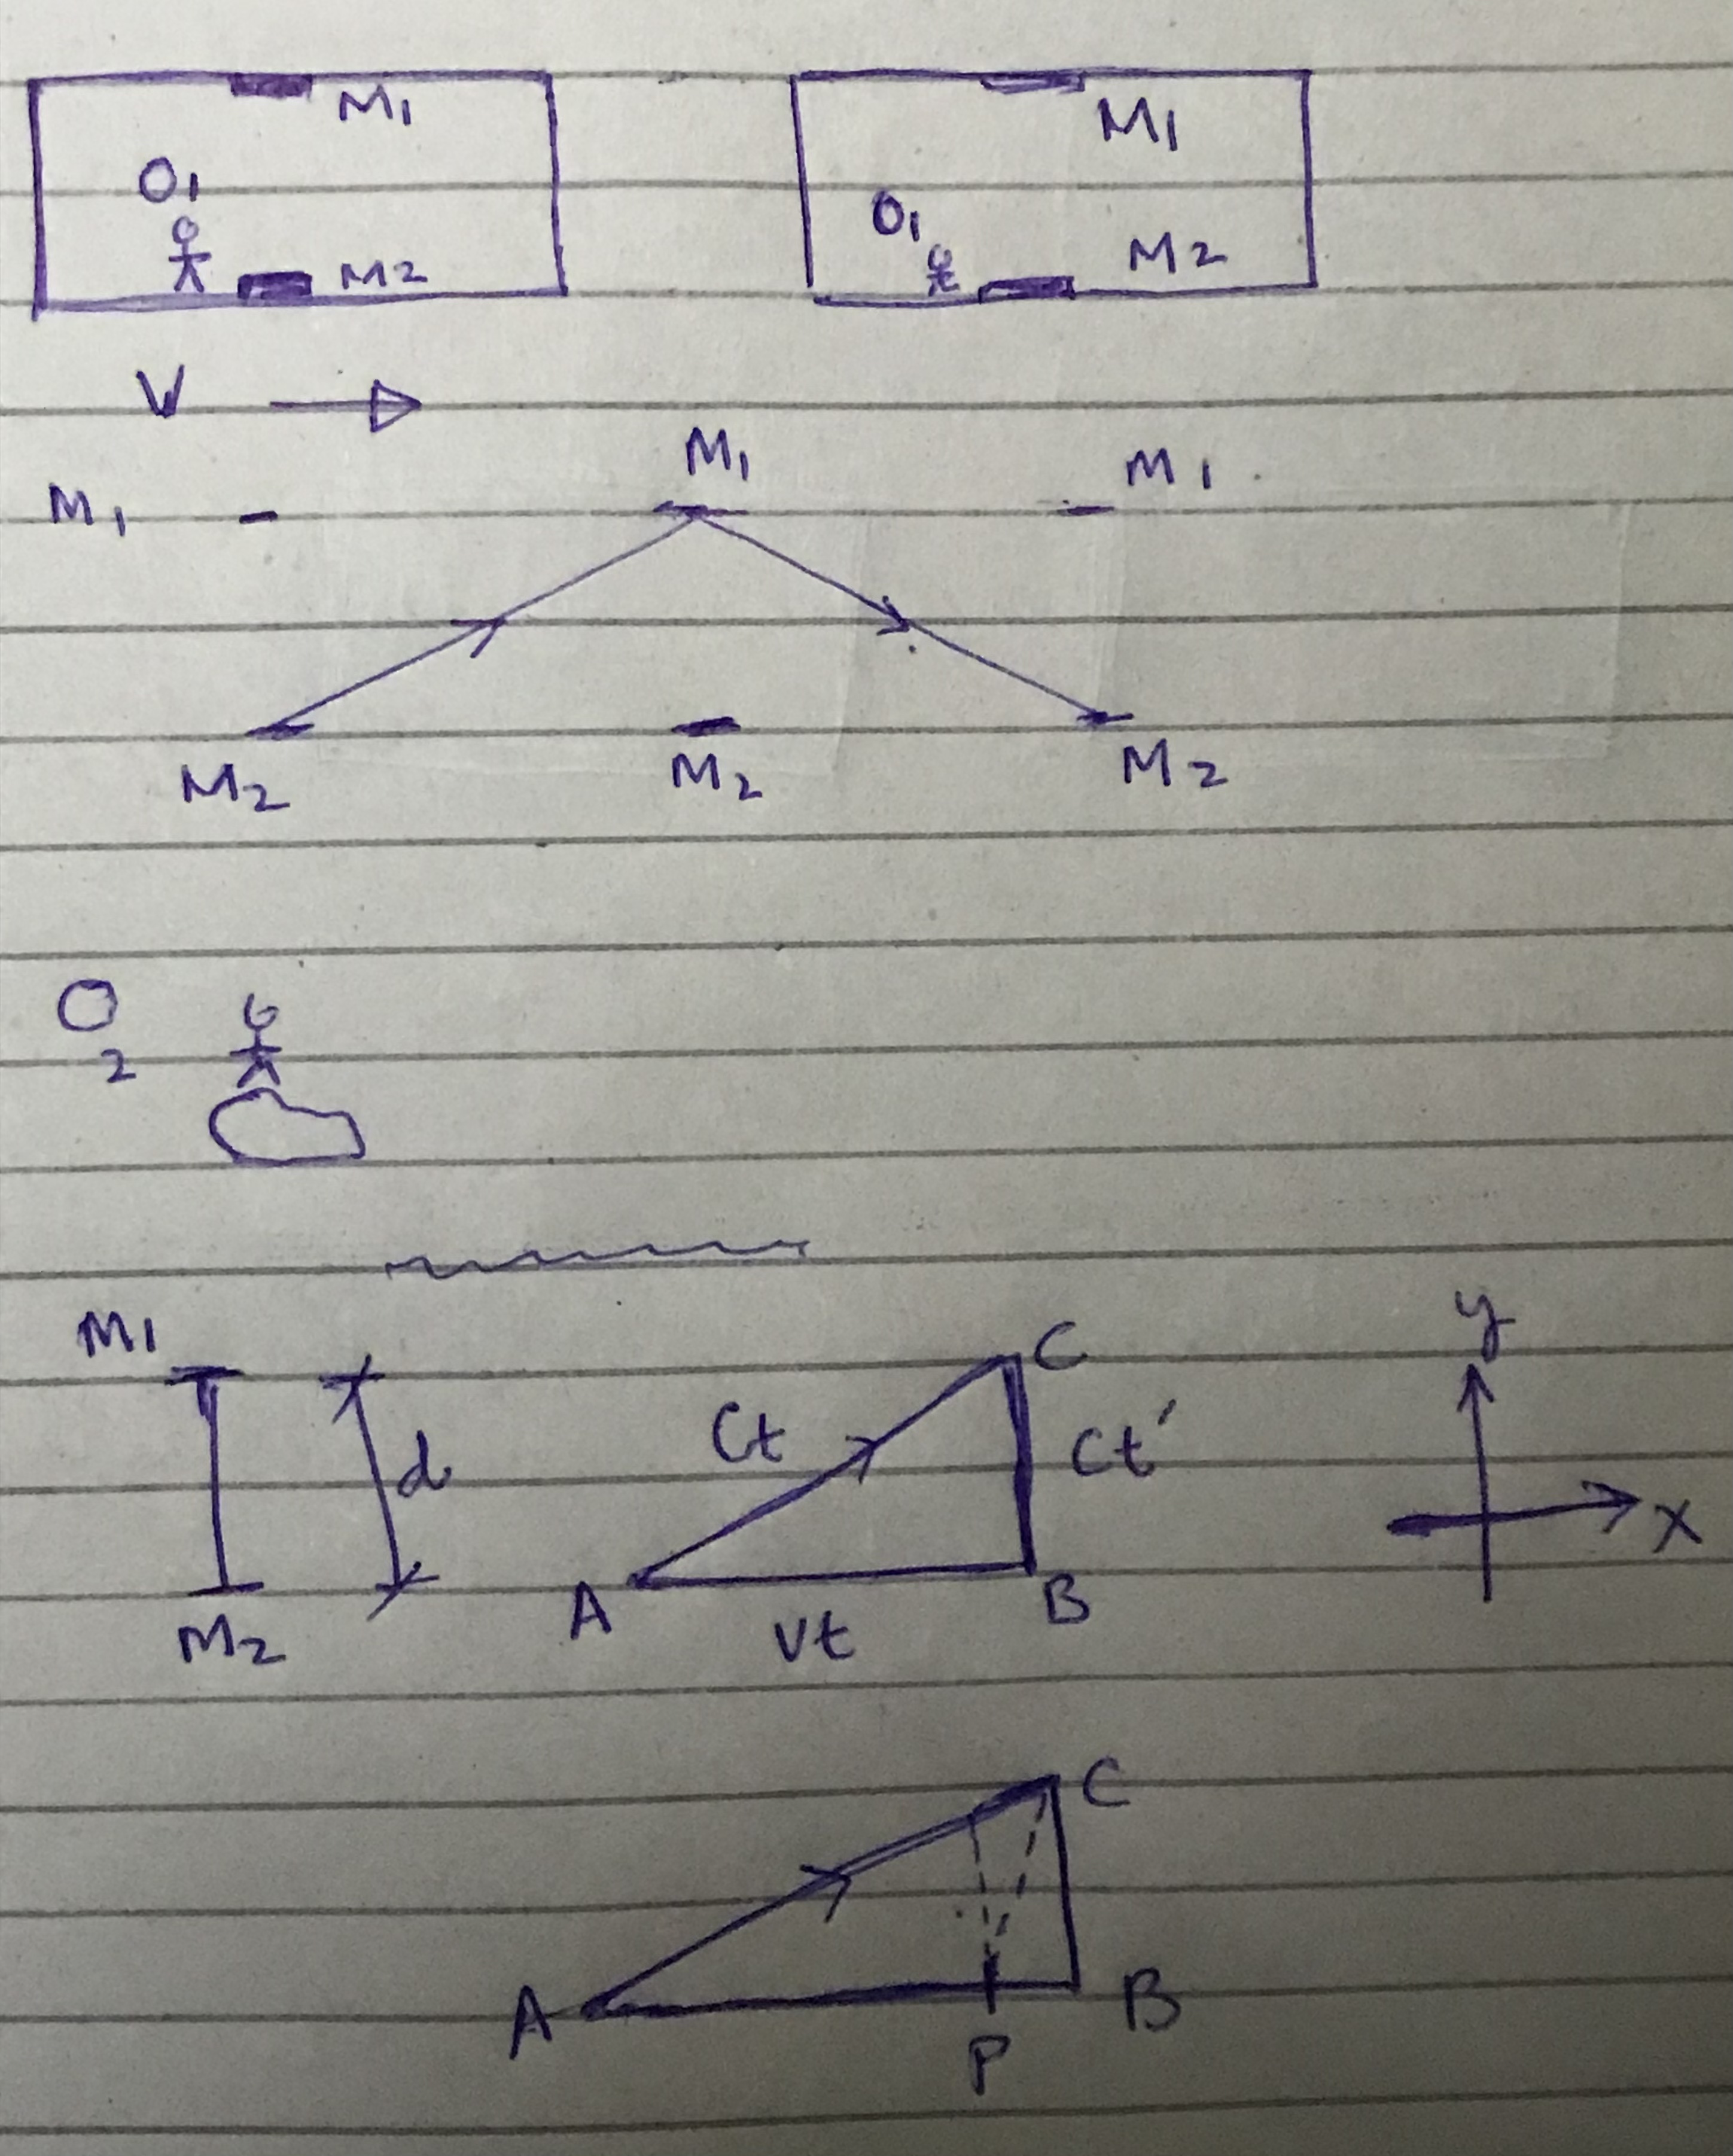 M1 M1
O1 O1
M2 M2
V
M1 M1 M1
M2 M2 M2
O2
M1 C y
d Ct Ct′
x
A B
M2 Vt
C
A B
P